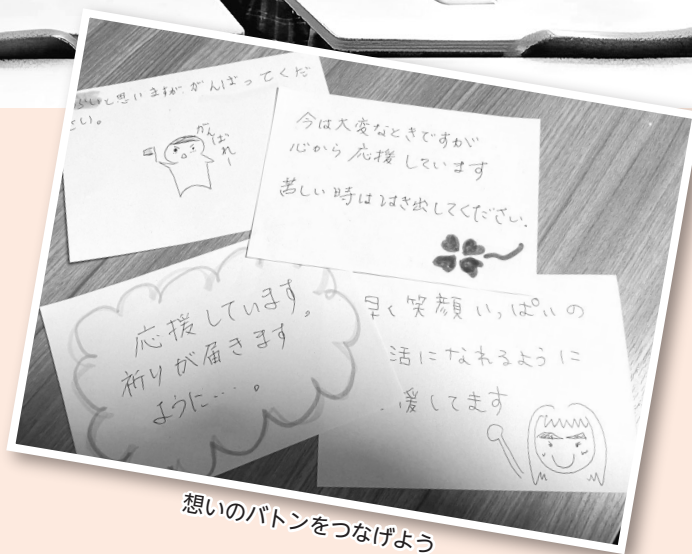 と思いますが、がんばってくだ
さい。
がんばれー
今は大変なときですが
心から応援しています
苦しい時ははき出してください。
応援しています。
祈りが届きます
ように…。
早く笑顔いっぱいの
活になれるように
援してます
想いのバトンをつなげよう